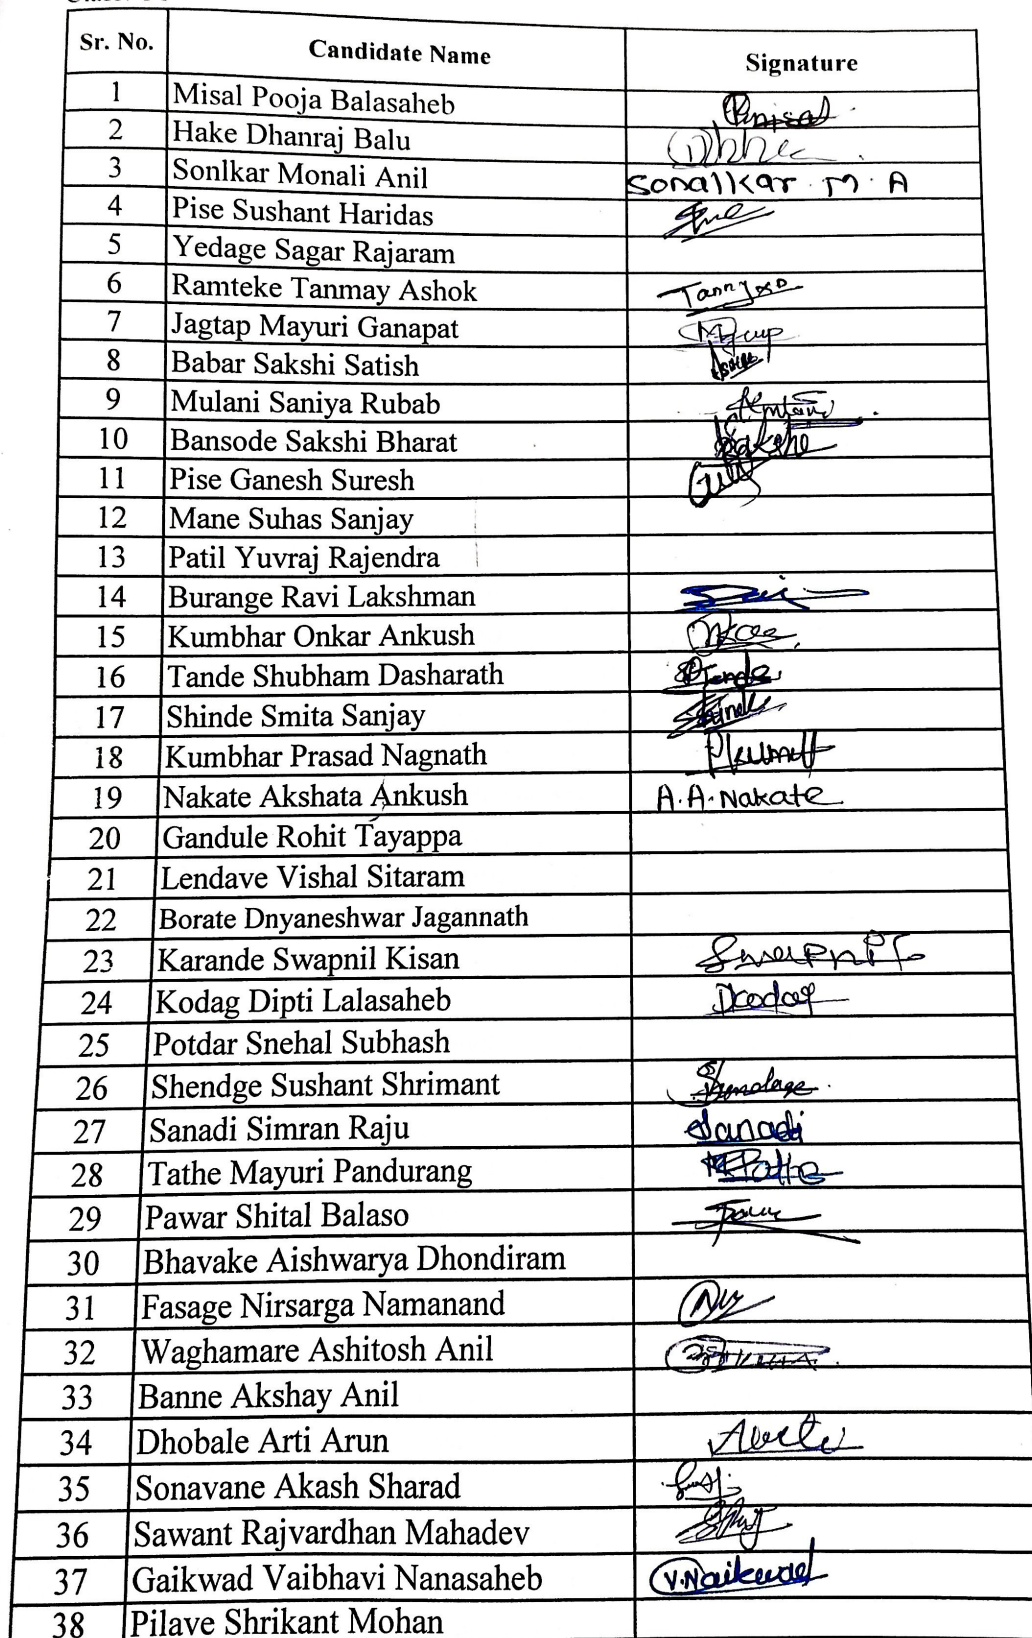 Sr. No. Candidate Name Signature
1 Misal Pooja Balasaheb Pmisal
2 Hake Dhanraj Balu
3 Sonlkar Monali Anil Sonalkar M. A
4 Pise Sushant Haridas
5 Yedage Sagar Rajaram
6 Ramteke Tanmay Ashok
7 Jagtap Mayuri Ganapat
8 Babar Sakshi Satish
9 Mulani Saniya Rubab
10 Bansode Sakshi Bharat
11 Pise Ganesh Suresh
12 Mane Suhas Sanjay
13 Patil Yuvraj Rajendra
14 Burange Ravi Lakshman
15 Kumbhar Onkar Ankush
16 Tande Shubham Dasharath
17 Shinde Smita Sanjay
18 Kumbhar Prasad Nagnath
19 Nakate Akshata Ankush A.A.Nakate
20 Gandule Rohit Tayappa
21 Lendave Vishal Sitaram
22 Borate Dnyaneshwar Jagannath
23 Karande Swapnil Kisan
24 Kodag Dipti Lalasaheb Dkodag
25 Potdar Snehal Subhash
26 Shendge Sushant Shrimant
27 Sanadi Simran Raju Sanadi
28 Tathe Mayuri Pandurang
29 Pawar Shital Balaso
30 Bhavake Aishwarya Dhondiram
31 Fasage Nirsarga Namanand
32 Waghamare Ashitosh Anil
33 Banne Akshay Anil
34 Dhobale Arti Arun
35 Sonavane Akash Sharad
36 Sawant Rajvardhan Mahadev
37 Gaikwad Vaibhavi Nanasaheb
38 Pilave Shrikant Mohan